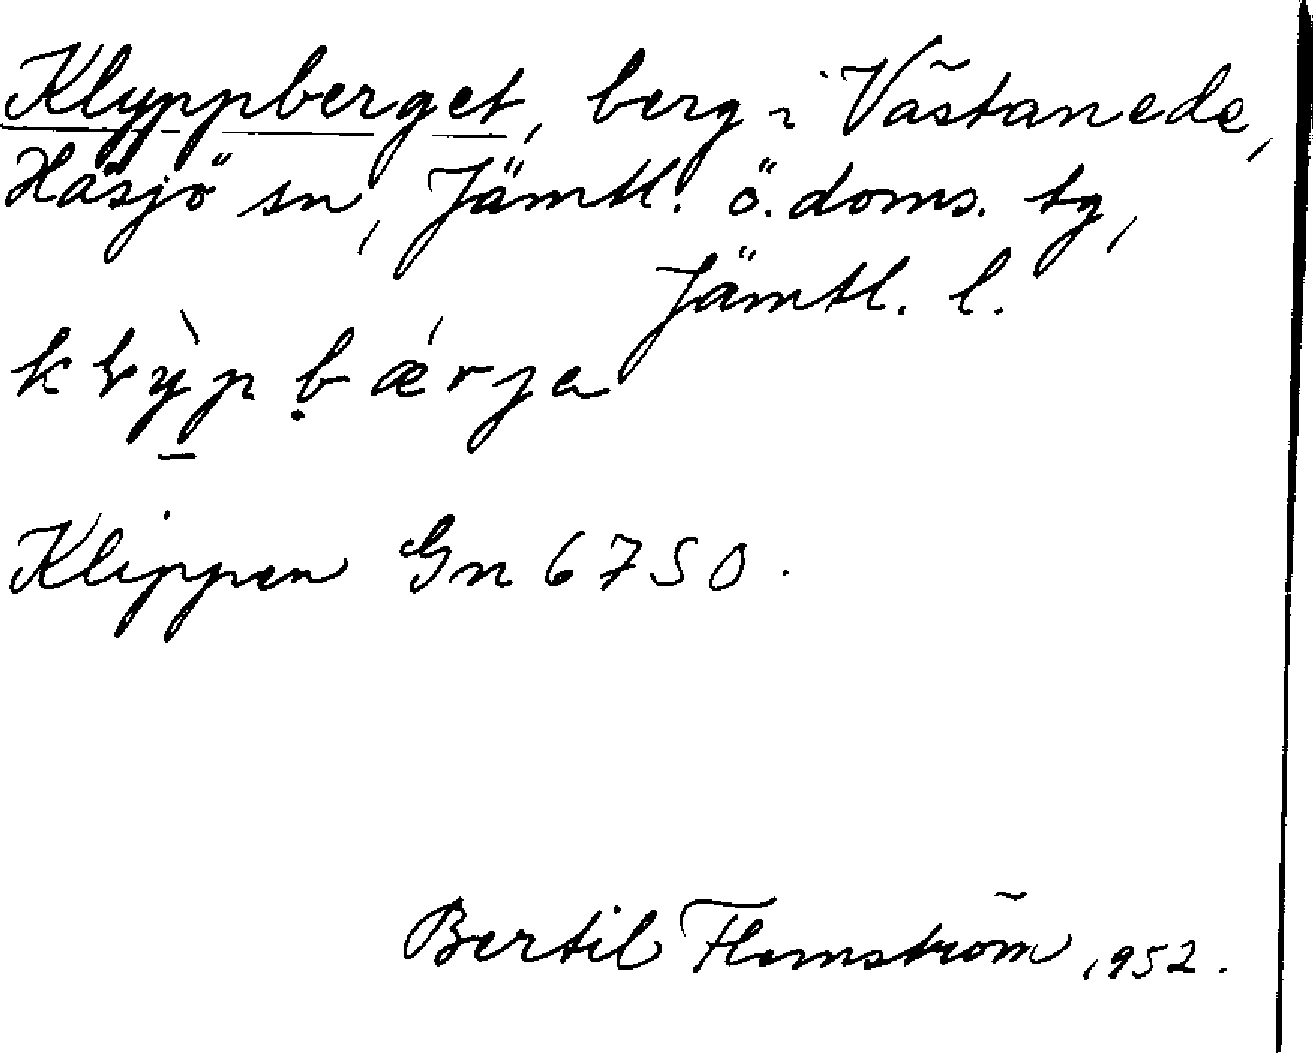 Klyppberget, berg i Västanede,
Håsjö sn, Jämtl. ö. doms. tg,
Jämtl. l.
Klippen Gn 6750.
Bertil Flemström, 1952.